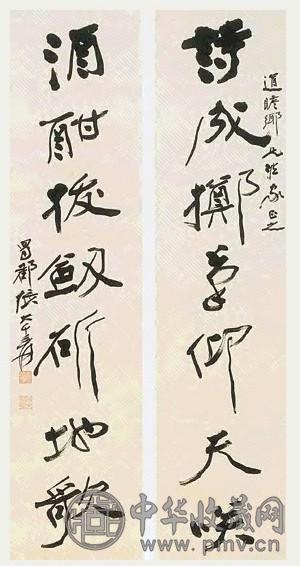 道瞻鄉兄法家正之
詩成擲筆仰天咲
酒酣拔劍斫地歌
蜀郡張大千爰
中华收藏网
www.pmv.cn